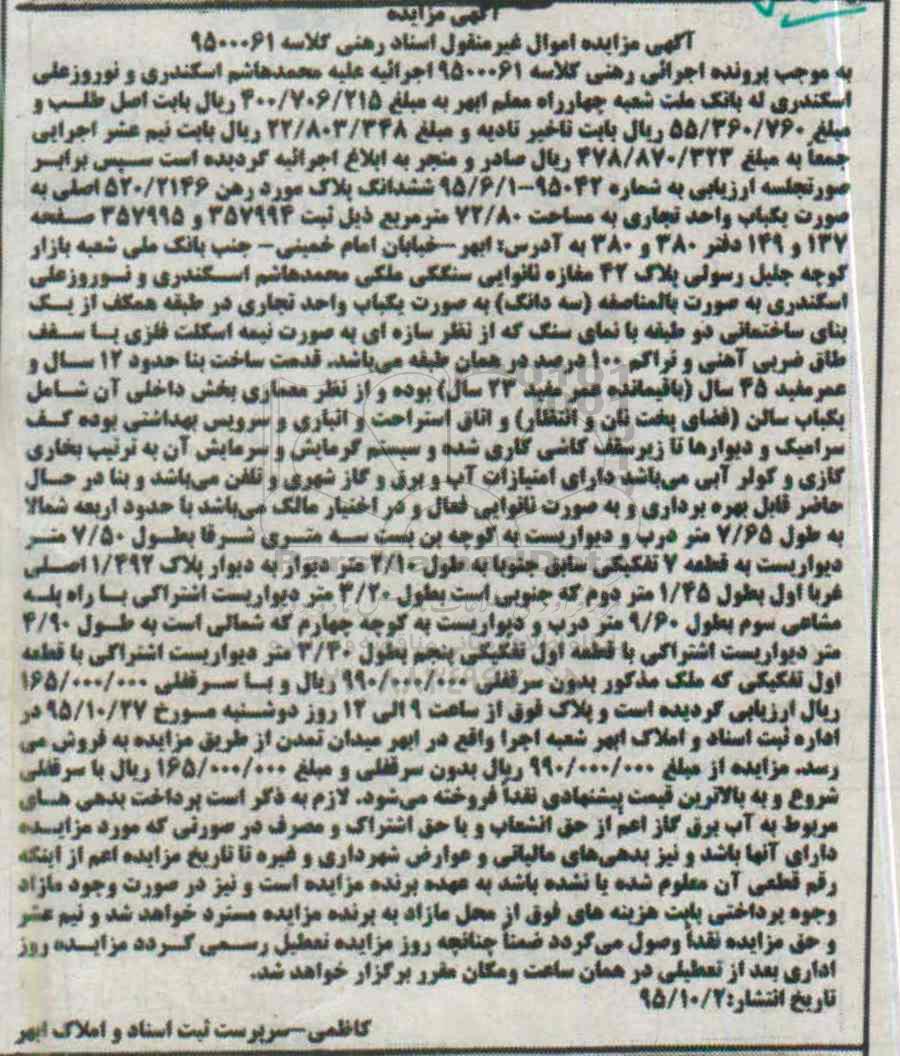 آگهی مزایده
آگهی مزایده اموال غیرمنقول اسناد رهنی کلاسه ۹۵۰۰۰۶۱
به موجب پرونده اجرائی رهنی کلاسه ۹۵۰۰۰۶۱ اجرائیه علیه محمدهاشم اسکندری و نوروزعلی
اسکندری له بانک ملت شعبه چهارراه معلم ابهر به مبلغ ۴۰۰/۷۰۶/۲۱۵ ریال بابت اصل طلب و
مبلغ ۵۵/۳۶۰/۷۶۰ ریال بابت تاخیر تادیه و مبلغ ۲۲/۸۰۳/۳۴۸ ریال بابت نیم عشر اجرایی
جمعاً به مبلغ ۴۷۸/۸۷۰/۳۲۳ ریال صادر و منجر به ابلاغ اجرائیه گردیده است سپس برابر
صورتجلسه ارزیابی به شماره ۹۵۰۴۲-۹۵/۶/۱ ششدانگ پلاک مورد رهن ۵۲۰/۲۱۴۶ اصلی به
صورت یکباب واحد تجاری به مساحت ۷۲/۸۰ مترمربع ذیل ثبت ۳۵۷۹۹۴ و ۳۵۷۹۹۵ صفحه
۱۳۷ و ۱۴۹ دفتر ۳۸۰ و ۳۸۰ به آدرس: ابهر -خیابان امام خمینی- جنب بانک ملی شعبه بازار
کوچه جلیل رسولی پلاک ۴۲ مغازه نانوایی سنگکی ملکی محمدهاشم اسکندری و نوروزعلی
اسکندری به صورت بالمناصفه (سه دانگ) به صورت یکباب واحد تجاری در طبقه همکف از یک
بنای ساختمانی دو طبقه با نمای سنگ که از نظر سازه ای به صورت نیمه اسکلت فلزی با سقف
طاق ضربی آهنی و تراکم ۱۰۰ درصد در همان طبقه می‌باشد. قدمت ساخت بنا حدود ۱۲ سال و
عمرمفید ۳۵ سال (باقیمانده عمر مفید ۲۳ سال) بوده و از نظر معماری بخش داخلی آن شامل
یکباب سالن (فضای پخت نان و انتظار) و اتاق استراحت و انباری و سرویس بهداشتی بوده کف
سرامیک و دیوارها تا زیرسقف کاشی کاری شده و سیستم گرمایش و سرمایش آن به ترتیب بخاری
گازی و کولر آبی می‌باشد دارای امتیازات آب و برق و گاز شهری و تلفن می‌باشد و بنا در حال
حاضر قابل بهره برداری و به صورت نانوایی فعال و در اختیار مالک می‌باشد با حدود اربعه شمالا
به طول ۷/۶۵ متر درب و دیواریست به کوچه بن بست سه متری شرقا بطول ۷/۵۰ متر
دیواریست به قطعه ۷ تفکیکی سابق جنوبا به طول ۴/۱۰ متر دیوار به دیوار پلاک ۱/۴۹۲ اصلی
غربا اول بطول ۱/۴۵ متر دوم که جنوبی است بطول ۳/۲۰ متر دیواریست اشتراکی با راه پله
مشاعی سوم بطول ۹/۶۰ متر درب و دیواریست به کوچه چهارم که شمالی است به طول ۴/۹۰
متر دیواریست اشتراکی با قطعه اول تفکیکی پنجم بطول ۳/۴۰ متر دیواریست اشتراکی با قطعه
اول تفکیکی که ملک مذکور بدون سرقفلی ۹۹۰/۰۰۰/۰۰۰ ریال و با سرقفلی ۱۶۵/۰۰۰/۰۰۰
ریال ارزیابی گردیده است و پلاک فوق از ساعت ۹ الی ۱۲ روز دوشنبه مورخ ۹۵/۱۰/۲۷ در
اداره ثبت اسناد و املاک ابهر شعبه اجرا واقع در ابهر میدان تمدن از طریق مزایده به فروش می
رسد. مزایده از مبلغ ۹۹۰/۰۰۰/۰۰۰ ریال بدون سرقفلی و مبلغ ۱۶۵/۰۰۰/۰۰۰ ریال با سرقفلی
شروع و به بالاترین قیمت پیشنهادی نقدا فروخته می‌شود. لازم به ذکر است پرداخت بدهی های
مربوط به آب برق گاز اعم از حق انشعاب و یا حق اشتراک و مصرف در صورتی که مورد مزایده
دارای آنها باشد و نیز بدهی‌های مالیاتی و عوارض شهرداری و غیره تا تاریخ مزایده اعم از اینکه
رقم قطعی آن معلوم شده یا نشده باشد به عهده برنده مزایده است و نیز در صورت وجود مازاد
وجوه پرداختی بابت هزینه های فوق از محل مازاد به برنده مزایده مسترد خواهد شد و نیم عشر
و حق مزایده نقداً وصول می‌گردد ضمناً چنانچه روز مزایده تعطیل رسمی گردد مزایده روز
اداری بعد از تعطیلی در همان ساعت ومکان مقرر برگزار خواهد شد.
تاریخ انتشار:۹۵/۱۰/۲
کاظمی-سرپرست ثبت اسناد و املاک ابهر